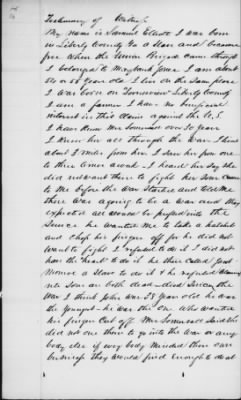 Testimony of Witness
My name is Samuel Elliott I was born
in Liberty County Ga a slave and became
free when the Union Army came through
I belonged to Maybank Jones I am about
54 or 55 year old I live on the same place
I was born on Liberty County
I am a farmer I have no beneficial
interest in this claim against the U.S.
I have known Mrs over 30 year
I knew her all through the War I lived
about 3 miles from her I seen her from one
to three times a week I heard her say she
did not want them to fight her son came
to Me before the War started and told Me
there was agoing to be a War and they
expected all would be pressed into the
Service he wanted Me to take a hatchet
and chop his finger off for he did not
want to fight I refused to do it I did not
have the heart to do it he then called Just
Monroe a Slave to do it & he refused
sons are both dead died Since the
War I think John was 28 year old he was
the youngest he was the one who wanted
his finger cut off Mrs said she
did not one them to go into the War or any
body else if every body minded their own
business they would find enough to do at